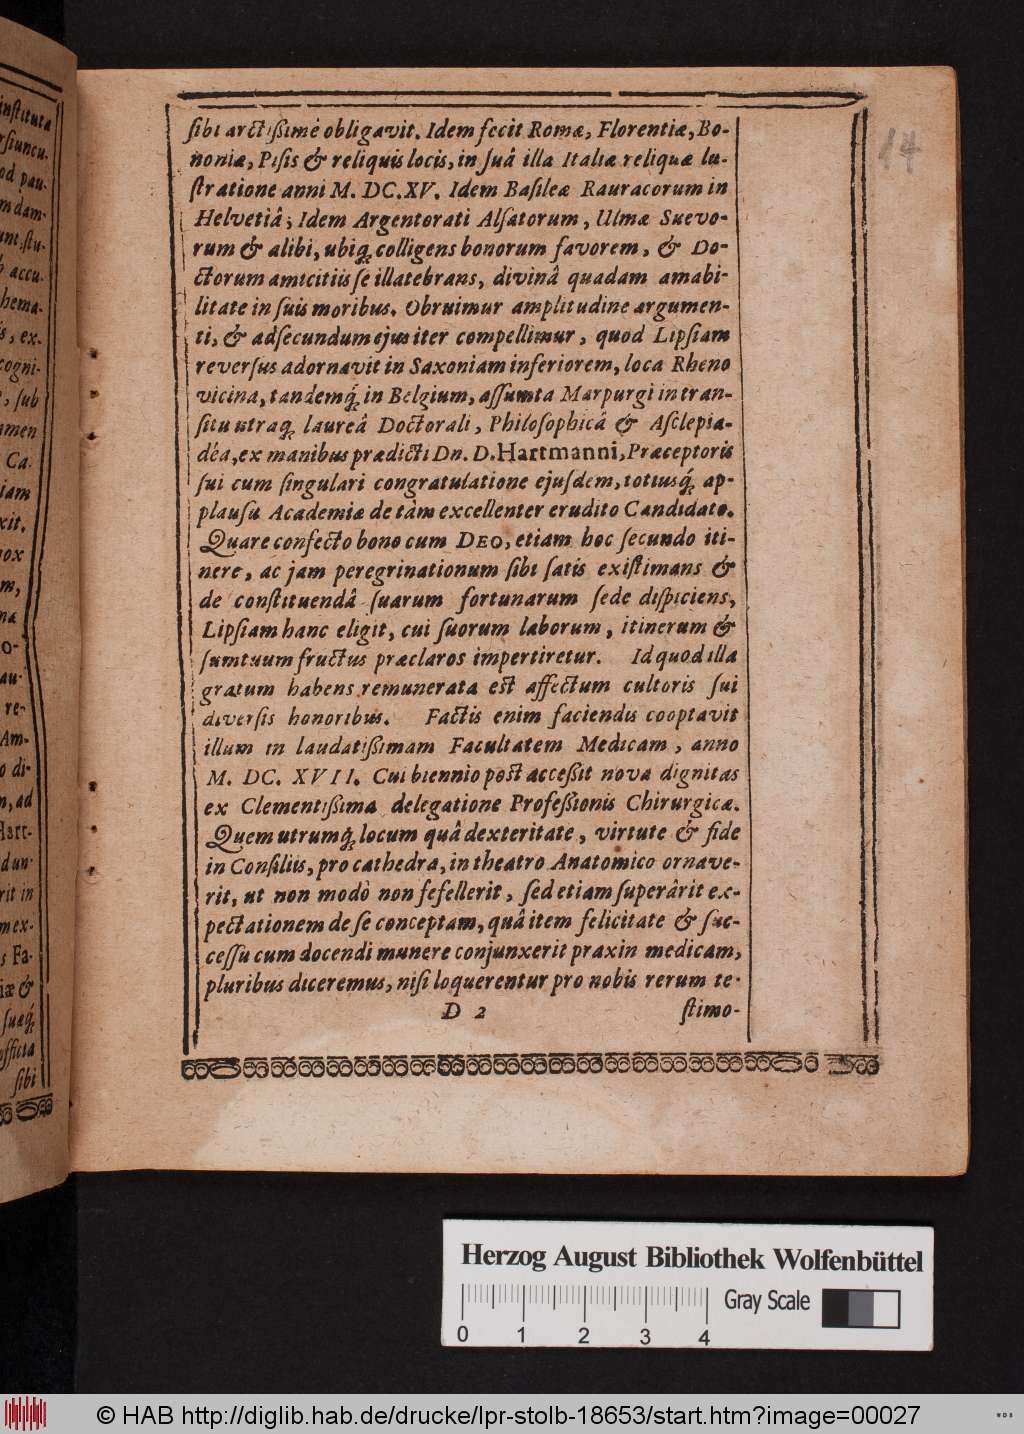 instituta
rsiuncu-
od pau-
m dam-
unt, stu-
b accu-
hema-
is, ex-
cogni-
, sub
imen
Ca-
iam
xit,
nox
m,
na
o-
au-
re-
Am-
o di-
n, ad
Hart-
dun-
rit in
m ex-
s Fa-
iæ &
suæq́;
officta
sibi
14
sibi arctißimè obligavit. Idem fecit Romæ, Florentiæ, Bo-
noniæ, Pisis & reliquis locis, in suâ illa Italiæ reliquæ lu-
stratione anni M. DC.XV. Idem Basileæ Rauracorum in
Helvetiâ; Idem Argentorati Alsatorum, Ulmæ Suevo-
rum & alibi, ubiq; colligens bonorum favorem, & Do-
ctorum amicitiis se illatebrans, divinâ quadam amabi-
litate in suis moribus. Obruimur amplitudine argumen-
ti, & adsecundum ejus iter compellimur, quod Lipsiam
reversus adornavit in Saxoniam inferiorem, loca Rheno
vicina, tandemq́; in Belgium, assumta Marpurgi in tran-
situ utraq; laureâ Doctorali, Philosophicâ & Asclepia-
déa, ex manibus prædicti Dn. D. Hartmanni, Præceptoris
sui cum singulari congratulatione ejusdem, totiusq́; ap-
plausu Academiæ de tàm excellenter erudito Candidato.
Quare confecto bono cum DEO, etiam hoc secundo iti-
nere, ac jam peregrinationum sibi satis existimans &
de constituendâ suarum fortunarum sede dispiciens,
Lipsiam hanc eligit, cui suorum laborum, itinerum &
sumtuum fructus præclaros impertiretur. Id quod illa
gratum habens remunerata est affectum cultoris sui
diversis honoribus. Factis enim faciendis cooptavit
illum in laudatißimam Facultatem Medicam, anno
M. DC. XVII. Cui biennio pòst acceßit nova dignitas
ex Clementißima delegatione Profeßionis Chirurgicæ.
Quem utrumq́; locum quâ dexteritate, virtute & fide
in Consiliis, pro cathedra, in theatro Anatomico ornave-
rit, ut non modò non fefellerit, sed etiam superârit ex-
pectationem de se conceptam, quâ item felicitate & suc-
cessu cum docendi munere conjunxerit praxin medicam,
pluribus diceremus, nisi loquerentur pro nobis rerum te-
D 2 stimo-
Herzog August Bibliothek Wolfenbüttel
0 1 2 3 4 Gray Scale
© HAB http://diglib.hab.de/drucke/lpr-stolb-18653/start.htm?image=00027